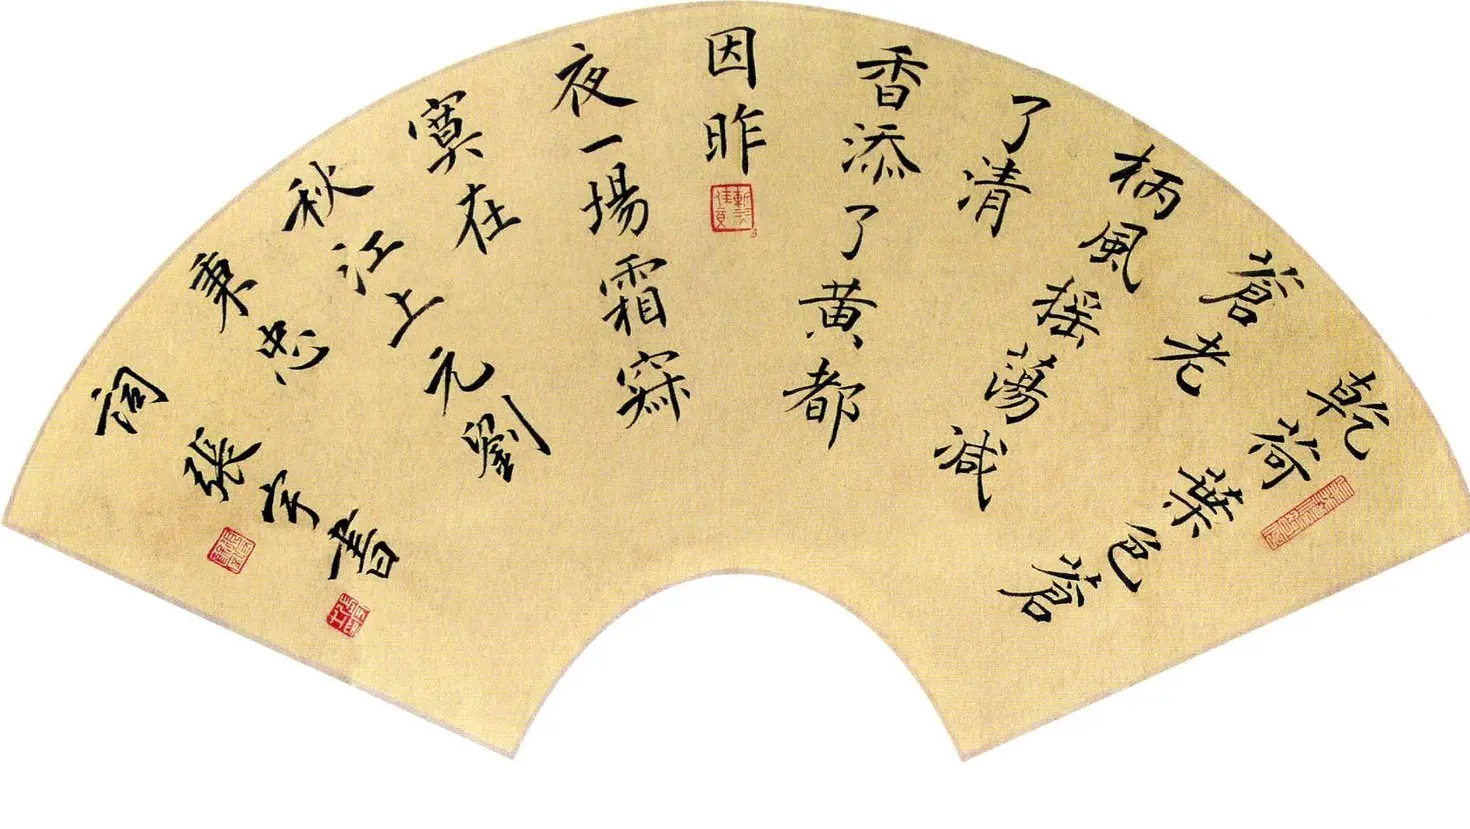 乾荷葉色蒼
蒼老
柄風摇蕩減
了清
香添了黄都
因昨
夜一場霜寂
寞在
秋江上元劉
秉忠
詞張宇書